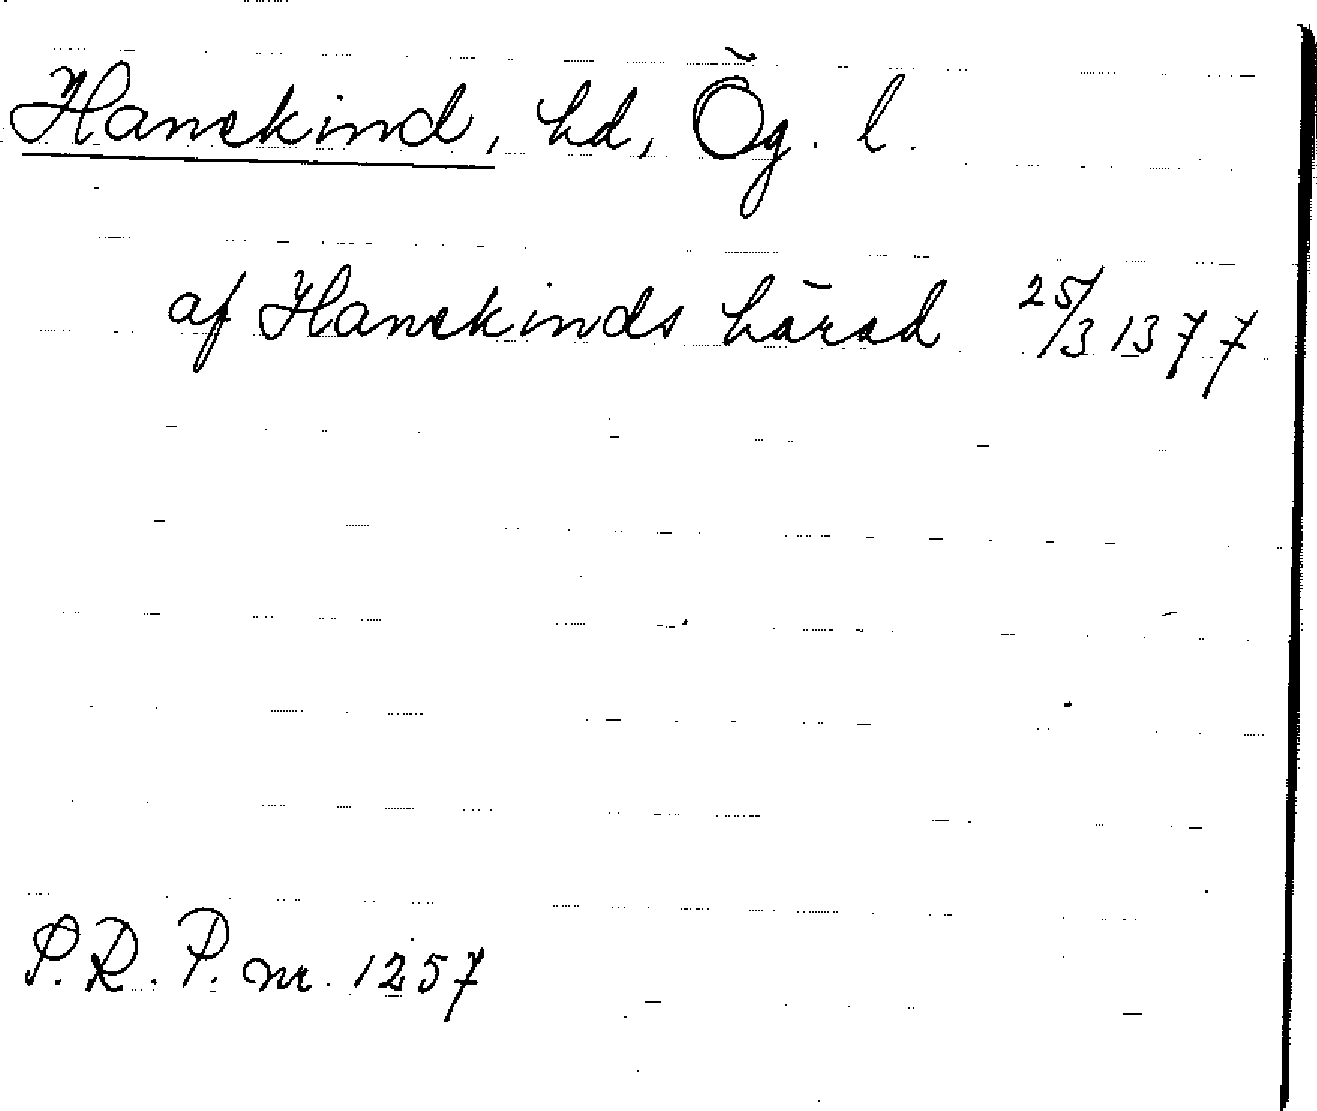 Hanekind, hd, Ög. l.
af Hanekinds härad 25/3 1377
S.R.P. nr. 1257